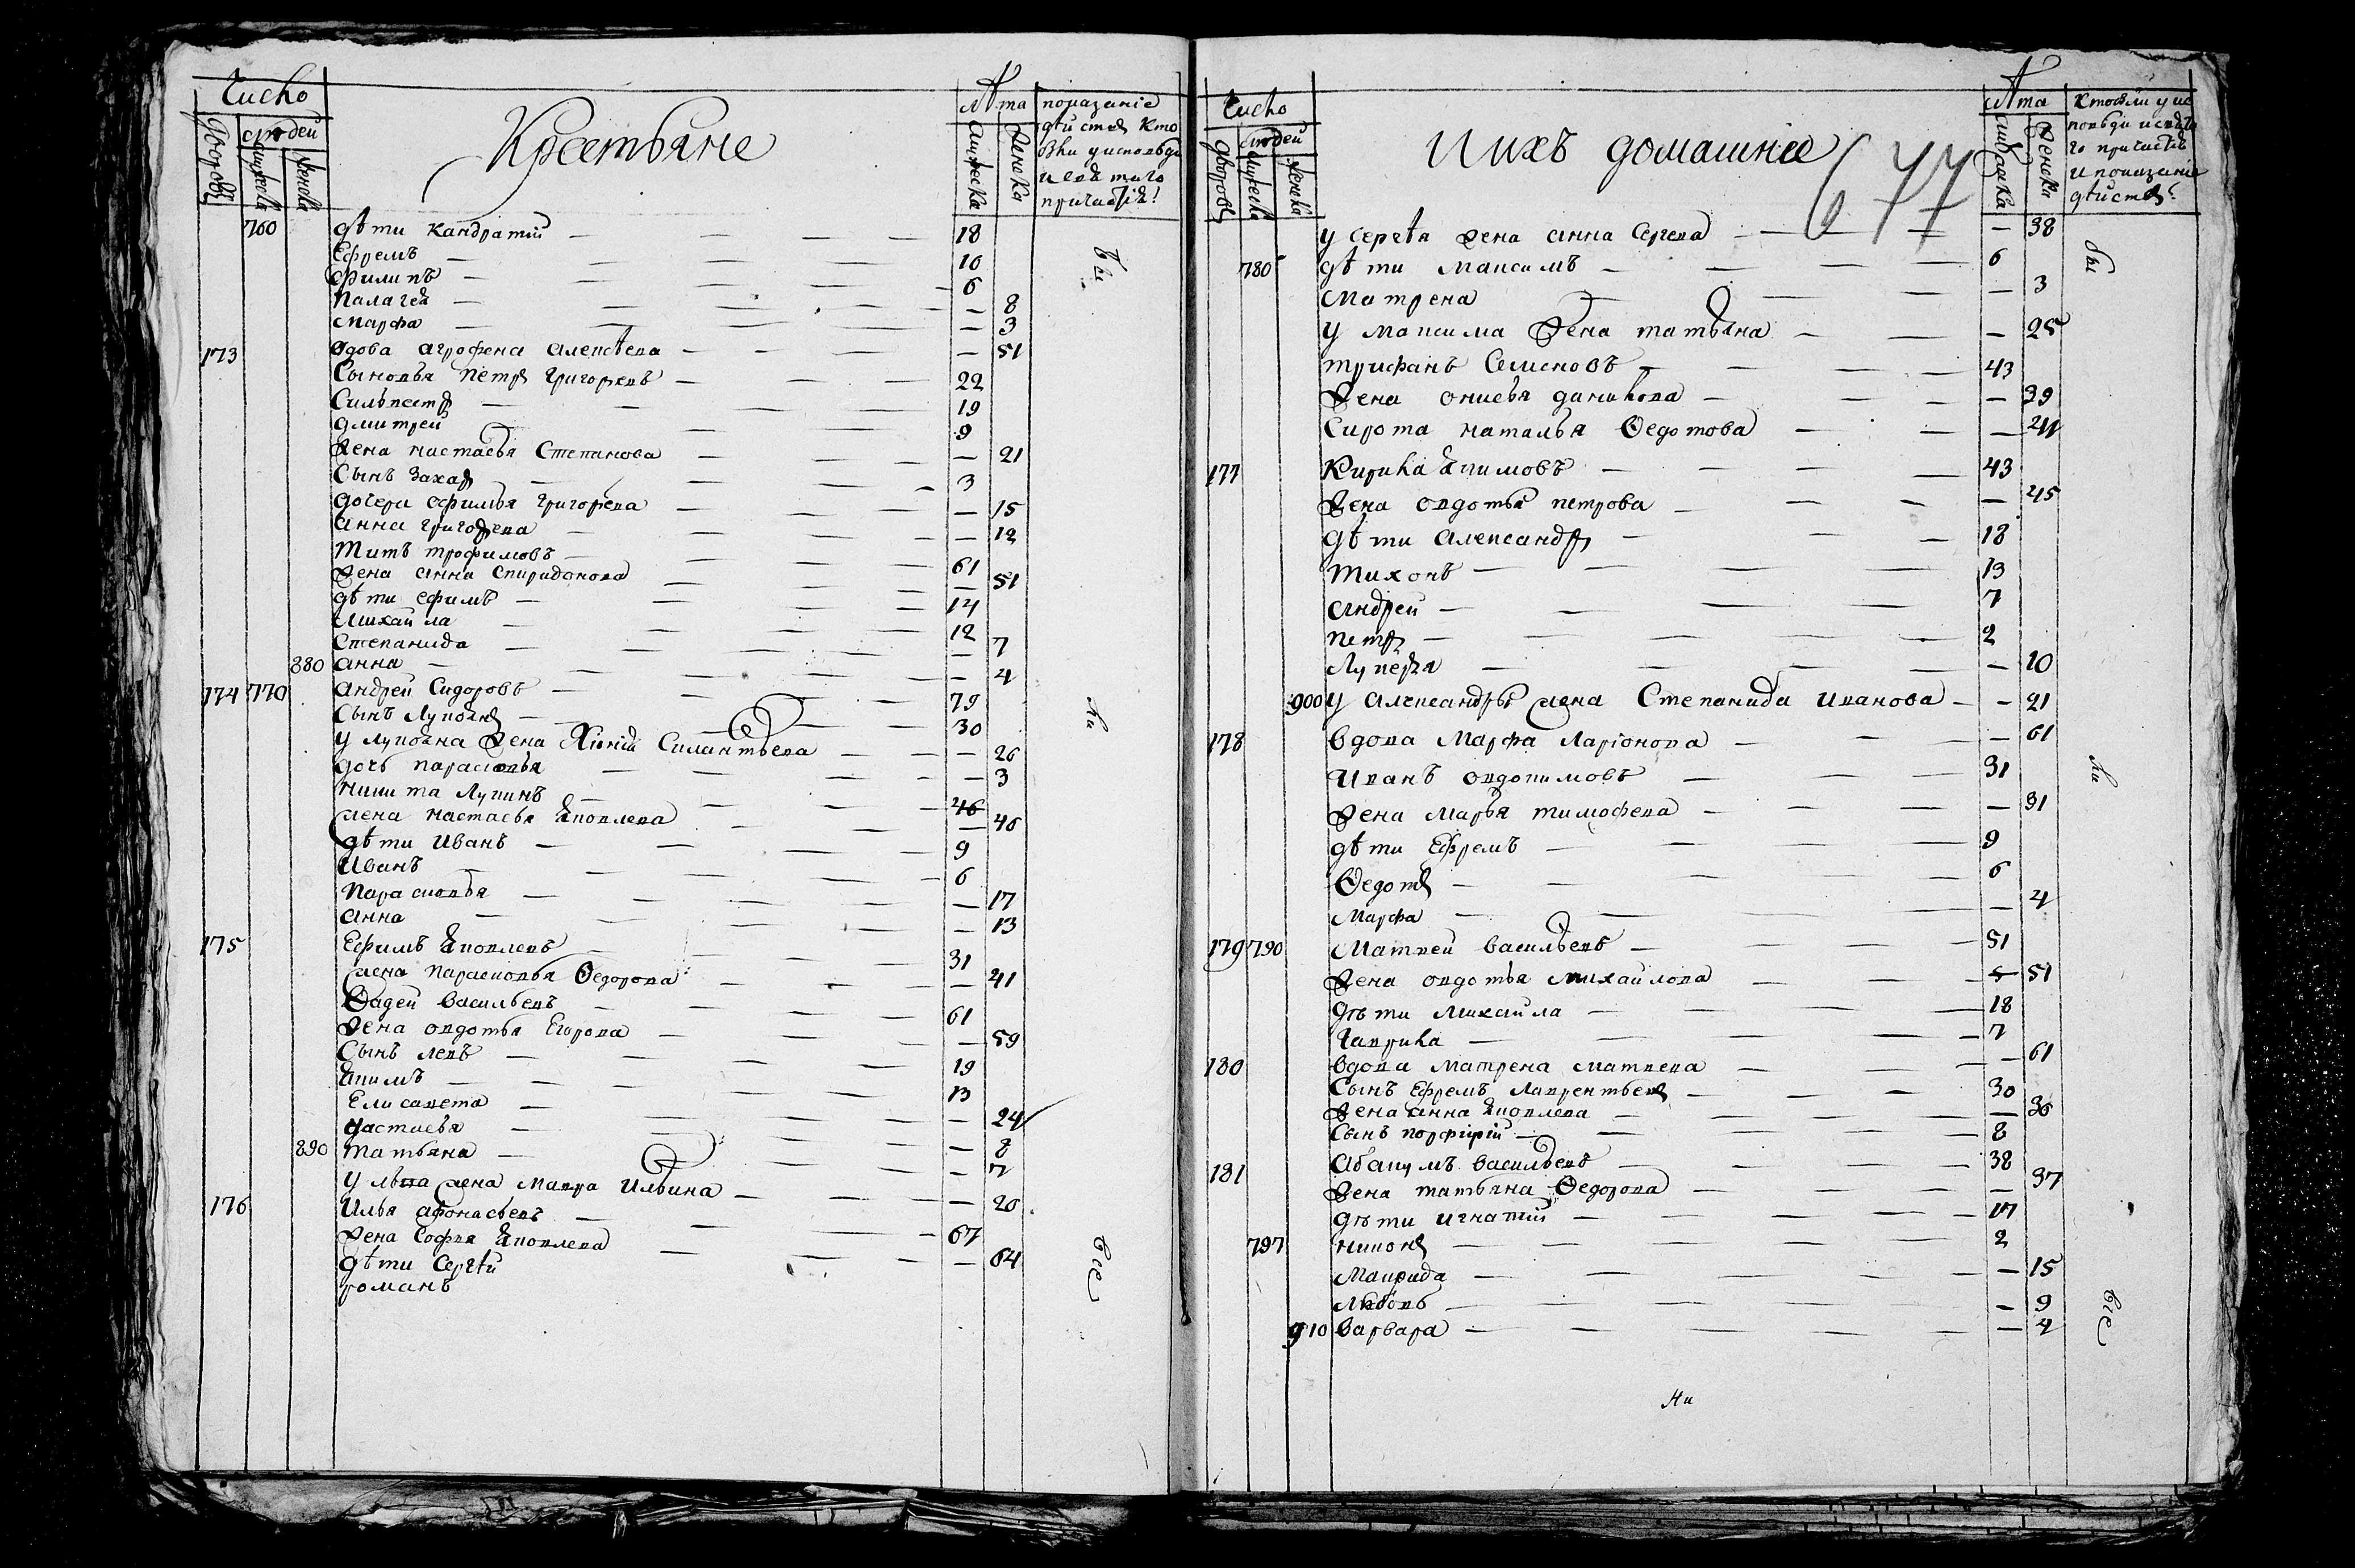 Число
Дворовъ
людей
мужеска
женска
Крестьяне
Лѣта
мужеска
женска
показаніе
дѣйствъ кто
былъ у исповѣди
и святаго
причастія!
760 дѣти Кандратій — 18
Ефремъ — 10
Филипъ — 6
Палагея — — 8
Марфа — — 3
173 вдова Агрофена Алексѣева — — 51
Сыновья Петръ Григорьевъ — 22
Сильвестръ — 19
Дмитрей — 9
жена Настасья Степанова — — 21
Сынъ Захаръ — 3
дочери Афимья Григорьева — — 15
Анна Григорьева — — 12
Титъ Трофимовъ — 61
жена Анна Спиридонова — — 51
дѣти Ефимъ — 14
Михайла — 12
Степанида — — 7
880 Анна — — 4
174 770 Андрей Сидоровъ — 79
Сынъ Лупоянъ — 30
у Лупояна жена Хіонія Силантьева — — 26
дочь Парасковья — — 3
Никита Лукинъ — 46
жена Настасья Яковлева — — 46
дѣти Иванъ — 9
Иванъ — 6
Парасковья — — 17
Анна — — 13
175 Ефимъ Яковлевъ — 31
жена Парасковья Ѳедорова — — 41
Ѳадей Васильевъ — 61
жена Овдотья Егорова — — 59
Сынъ Левъ — 19
Якимъ — 13
Елисавета — — 24
Настасья — — 8
890 Татьяна — — 7
у Льва жена Мавра Ильина — — 20
176 Илья Афонасьевъ — 67
жена Софья Яковлева — — 64
дѣти Сергѣй
Романъ
бы
ли
всѣ
Число
Дворовъ
людей
мужеска
женска
И ихъ домашніе
677
Лѣта
мужеска
женска
Кто былъ у ис
повѣди и свята
го причастія
и показаніе
дѣйствъ?
у Сергѣя жена Анна Сергева — — 38
780 дѣти Максимъ — 6
Матрена — — 3
у Максима жена Татьяна — — 25
Трифанъ Семеновъ — 43
жена Данилова — — 39
Сирота Наталья Ѳедотова —
177 Кирила Якимовъ — 43
жена Овдотья Петрова — — 45
дѣти Александръ — 18
Тихонъ — 13
Андрей — 7
Петръ — 2
Лукерья — — 10
900 у Александры жена Степанида Иванова — — 21
178 Вдова Марфа Ларіонова — — 61
Иванъ Овдокимовъ — 31
жена Марья Тимофева — — 31
дѣти Ефремъ — 9
Ѳедотъ — 6
Марфа — — 4
179 790 Матвей Васильевъ — 51
жена Овдотья Михайлова — — 51
дѣти Михайла — 18
Гаврила — 7
180 Вдова Матрена Матвева — — 61
Сынъ Ефремъ Лаврентьевъ — 30
жена Анна Яковлева — — 36
Сынъ Порфирій — 8
181 Абакумъ Васильевъ — 38
жена Татьяна Ѳедорова — — 37
дѣти Игнатій — 17
797 Никонъ — 2
Маврида — — 15
Любовь — — 9
910 Варвара — — 4
бы
ли
всѣ
Ни